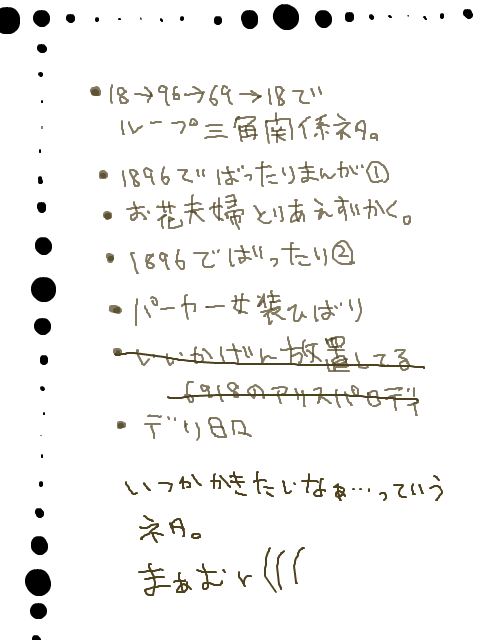 ・18→96→69→18で
ループ三角関係ネタ。
・1896でばったりまんが①
・お花夫婦とりあえずかく。
・1896でばったり②
・パーカー女装ひばり
・いいかげん放置してる
6918のアリスパロデ
・デリ日ロ
いつかかきたいなぁ…っていう
ネタ。
まぁむり(((